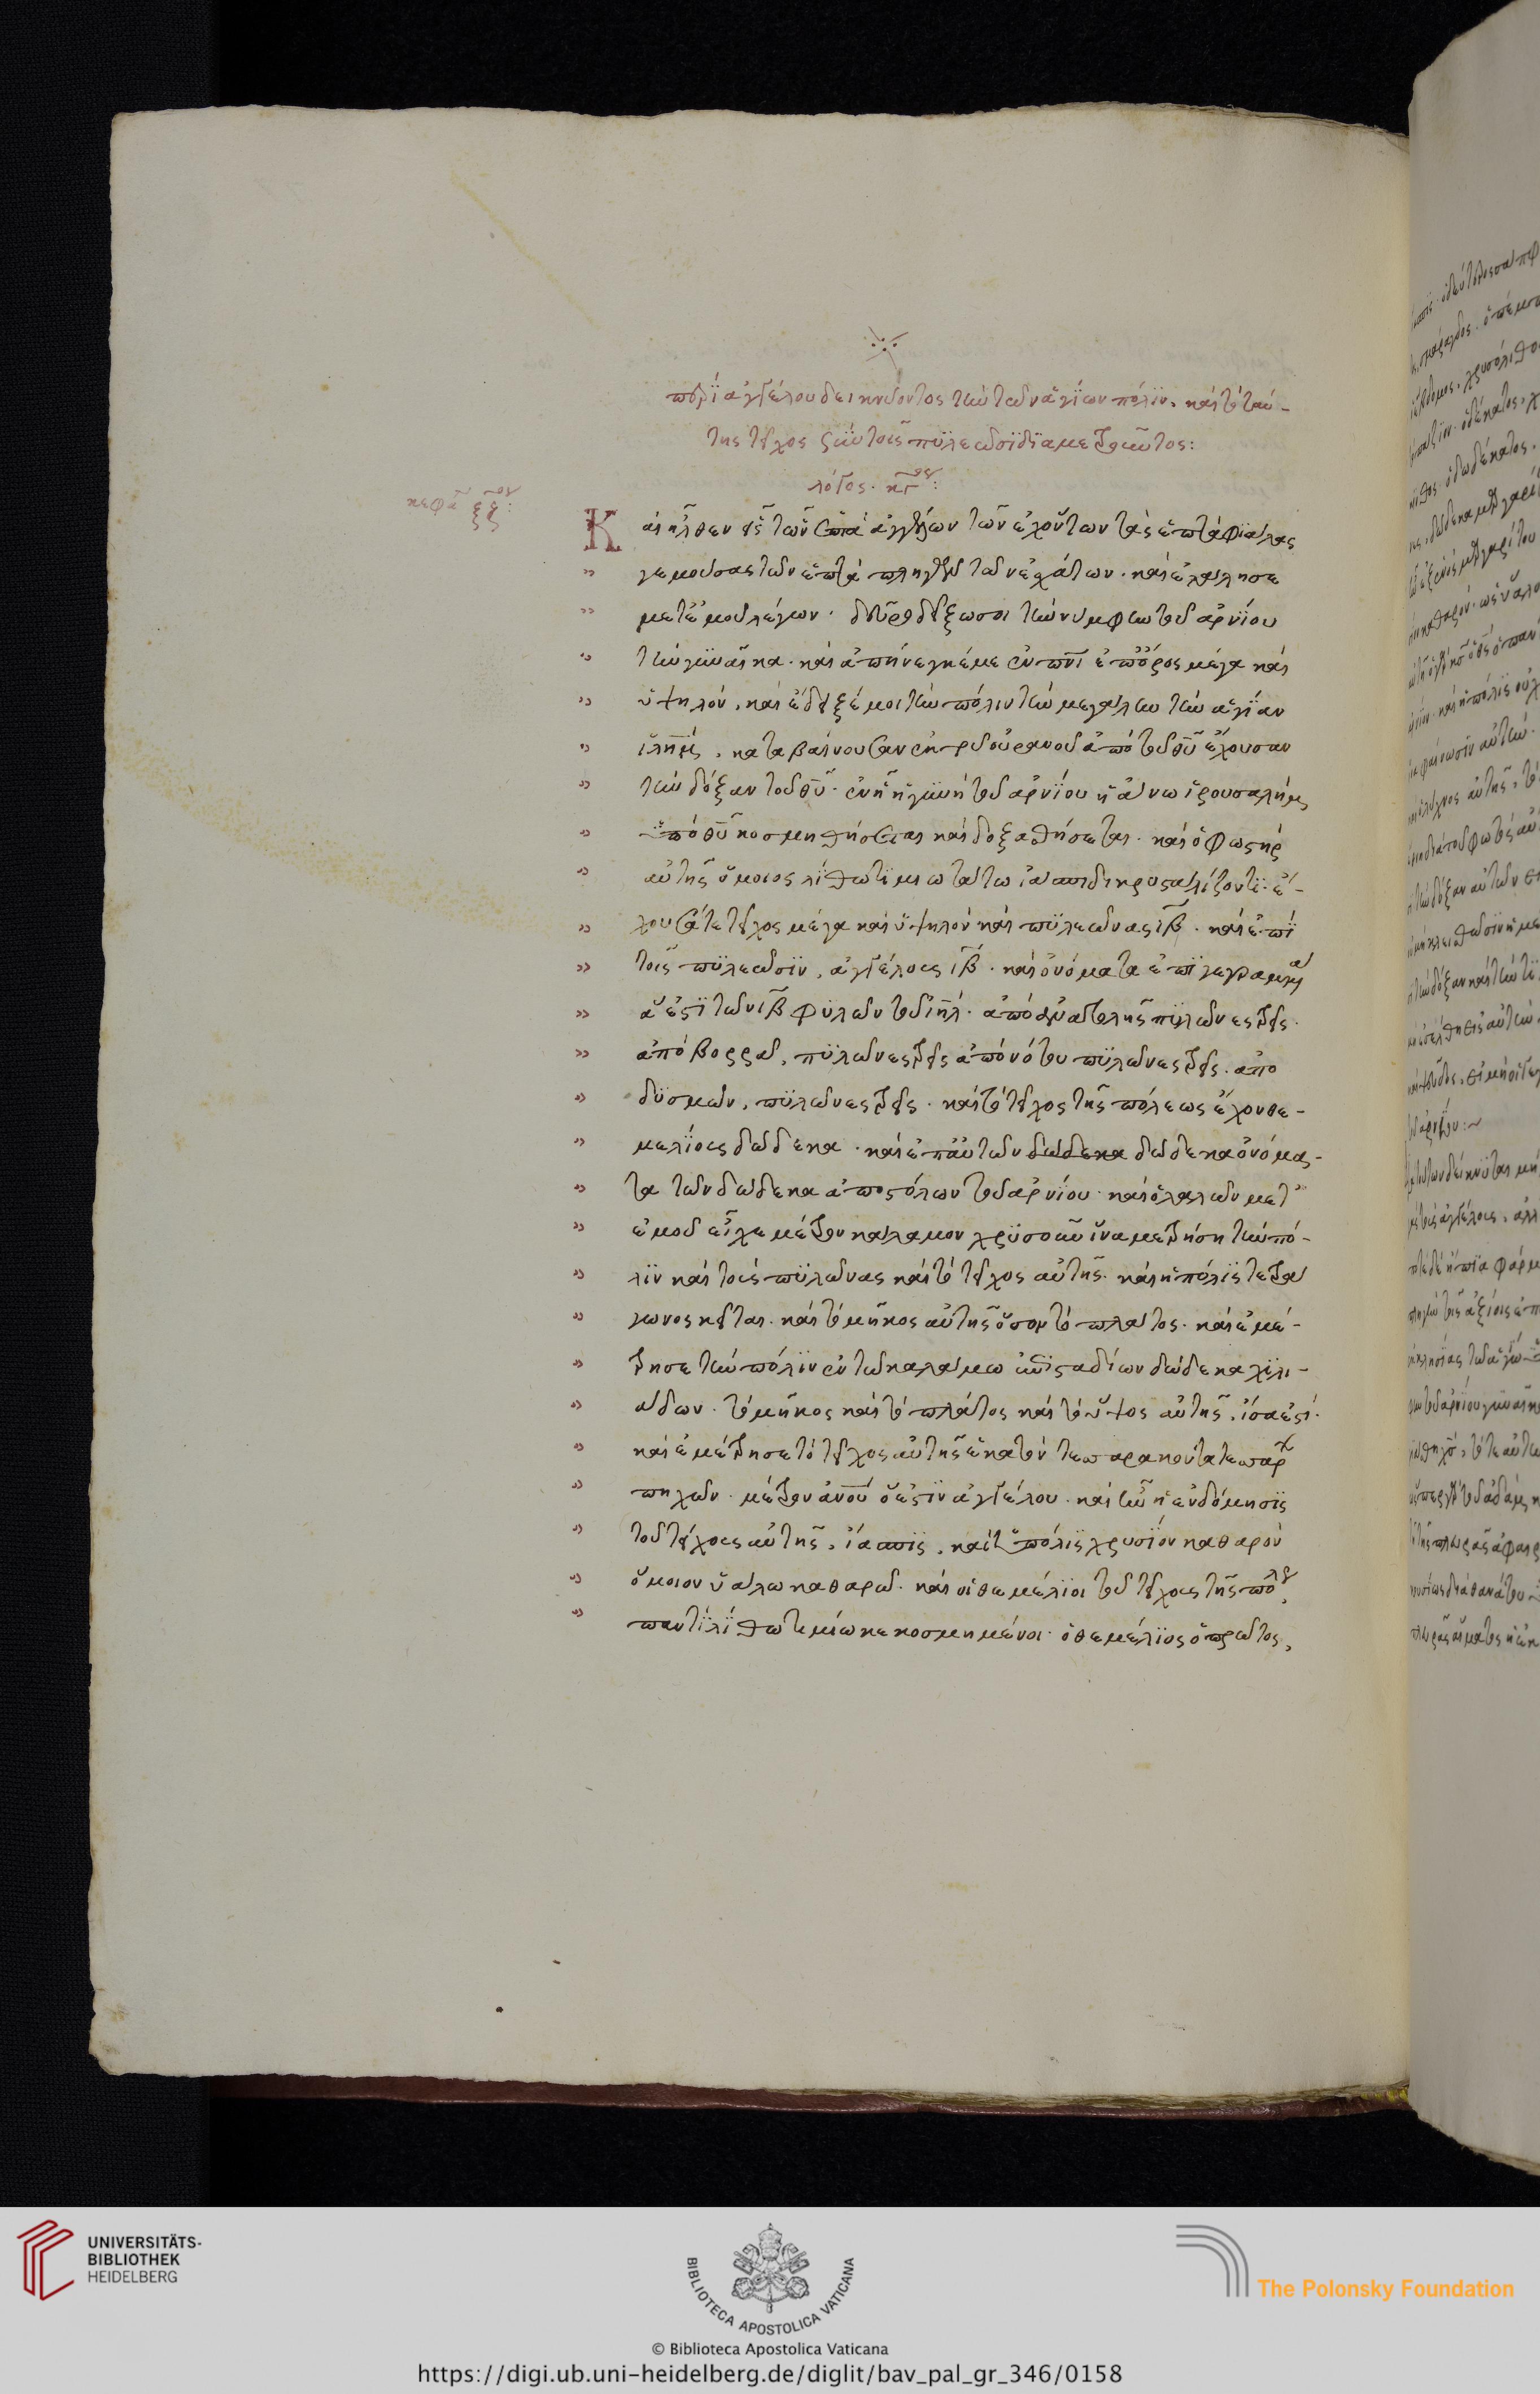 περὶ ἀγγέλου δεικνύοντος τὴν τῶν ἁγίων πόλιν. καὶ τὸ ταύ-
της τεῖχος σὺν τοῖς πυλεῶσι διαμετροῦντος:
λόγος
κεφα
Καὶ ἦλθεν εἷς τῶν ἑπτὰ ἀγγέλων τῶν ἐχόντων τὰς ἑπτὰ φιάλας
γεμούσας τῶν ἑπτὰ πληγῶν τῶν ἐσχάτων. καὶ ἐλάλησε
μετ' ἐμοῦ λέγων. δεῦρο δείξω σοι τὴν νύμφην τοῦ ἀρνίου
τὴν γυναῖκα. καὶ ἀπήνεγκέ με ἐν πνι ἐπ' ὄρος μέγα καὶ
ὑψηλόν. καὶ ἔδειξέ μοι τὴν πόλιν τὴν μεγάλην τὴν ἁγίαν
ιλημ. καταβαίνουσαν ἐκ τοῦ οὐρανοῦ ἀπὸ τοῦ θυ ἔχουσαν
τὴν δόξαν τοῦ θυ. ἐν ᾗ ἡ γυνὴ τοῦ ἀρνίου ἡ ἄνω ἱερουσαλήμ
ὑπὸ θυ κοσμηθήσεται καὶ δοξασθήσεται. καὶ ὁ φωστὴρ
αὐτῆς ὅμοιος λίθω τιμιωτάτω ἰάσπιδι κρυσταλίζοντι. ἔ-
χουσά τε τεῖχος μέγα καὶ ὑψηλὸν καὶ πυλεῶνας ιβ. καὶ ἐπὶ
τοῖς πυλεῶσιν, ἀγγέλους ιβ. καὶ ὀνόματα ἐπιγεγραμμένα
ἅ ἐστι τῶν ιβ φυλῶν τοῦ ιηλ. ἀπὸ ἀνατολῆς πυλῶνες τρεῖς.
ἀπὸ βορρᾶ, πυλῶνες τρεῖς ἀπὸ νότου πυλῶνες τρεῖς. ἀπὸ
δυσμῶν, πυλῶνες τρεῖς. καὶ τὸ τεῖχος τῆς πόλεως ἔχον θε-
μελίους δώδεκα. καὶ ἐπ' αὐτῶν δώδεκα δώδεκα ὀνόμα-
τα τῶν δώδεκα ἀποστόλων τοῦ ἀρνίου. καὶ ὁ λαλῶν μετ'
ἐμοῦ εἶχε μέτρον κάλαμον χρυσοῦν ἵνα μετρήση τὴν πό-
λιν καὶ τοὺς πυλῶνας καὶ τὸ τεῖχος αὐτῆς. καὶ ἡ πόλις τετρά
γωνος κεῖται. καὶ τὸ μῆκος αὐτῆς ὅσον τὸ πλάτος. καὶ ἐμέ-
τρησε τὴν πόλιν ἐν τῶ καλάμω ἐπὶ σταδίων δώδεκα χιλι-
άδων. τὸ μῆκος καὶ τὸ πλάτος καὶ τὸ ὕψος αὐτῆς. ἴσα ἐστί.
καὶ ἐμέτρησε τὸ τεῖχος αὐτῆς ἑκατὸν τεσσαρακοντατεσσάρ
πηχῶν. μέτρον ἀνου ὅ ἐστιν ἀγγέλου. καὶ ἦν ἡ ἐνδόμησις
τοῦ τείχους αὐτῆς. ἴασπις. καὶ ἡ πόλις χρυσίον καθαρὸν
ὅμοιον ὑάλω καθαρῶ. καὶ οἱ θεμέλιοι τοῦ τείχους τῆς πόλε
παντὶ λίθω τιμίω κεκοσμημένοι. ὁ θεμέλιος ὁ πρῶτος,
UNIVERSITÄTS-
BIBLIOTHEK
HEIDELBERG
BIBLIOTECA APOSTOLICA VATICANA
The Polonsky Foundation
© Biblioteca Apostolica Vaticana
https://digi.ub.uni-heidelberg.de/diglit/bav_pal_gr_346/0158